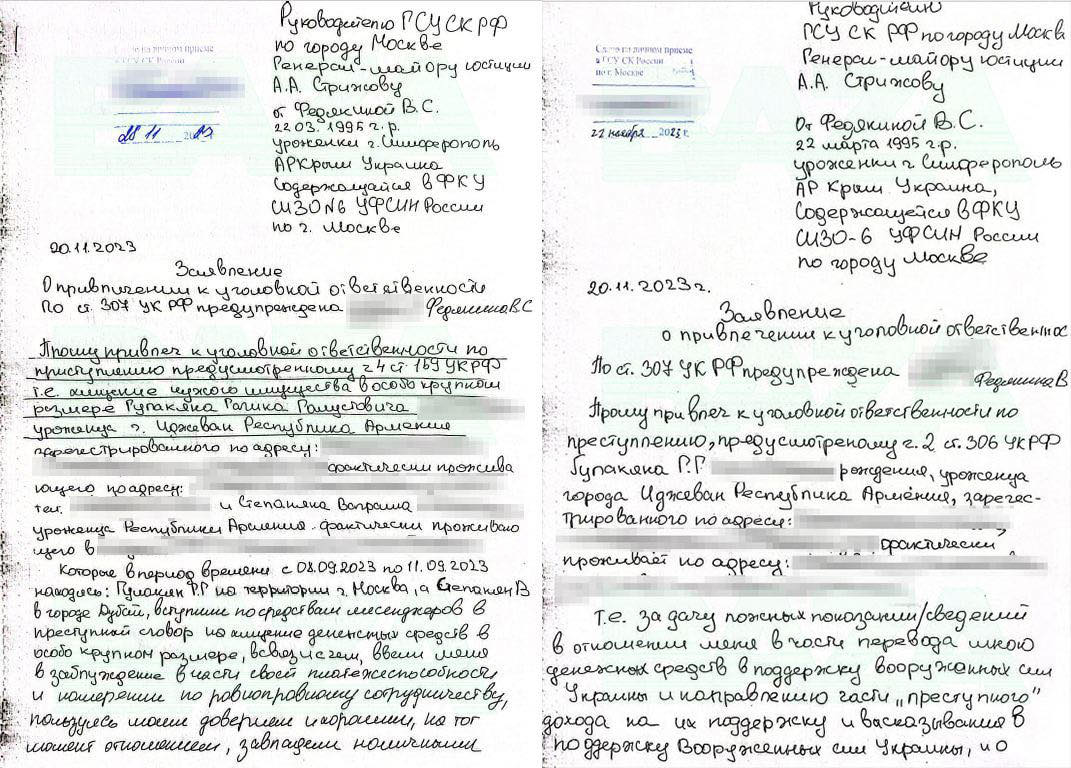 Руководителю ГСУ СК РФ
по городу Москве
Генерал-майору юстиции
А.А. Стрижову
от Федякиной В.С.
22.03.1995 г.р.
уроженки г. Симферополь
АР Крым Украина
Содержащайся в ФКУ
СИЗО №6 УФСИН России
по г. Москве
на личном приеме
в ГСУ СК России
по г. Москве
28 11 2023
20.11.2023
Заявление
О привлечении к уголовной ответственности
По ст. 307 УК РФ предупреждена Федякина В.С
Прошу привлеч к уголовной ответственности по
приступлению предусмотренному ч 4 ст. 159 УК РФ
т.е. хищение чужого имущества в особо крупном
размере Гупакяна Рагика Рамустовича
уроженца г. Иджеван Республика Армения
зарегестрированного по адресу:
фактически прожива
ющего по адресу:
тел. и Степаняна Вапраша
уроженца Республики Армения фактически проживаю
щего в
Которые в период времени с 08.09.2023 по 11.09.2023
находясь: Гупакян Р.Г на территории г. Москва, а Степанян В
в городе Дубай, вступили по средствам месенджеров в
преступный сговор на хищение денежных средств в
особо крупном размере, в связи с чем, ввели меня
в заблуждение в части своей платежеспособности
и намерении по равноправному сотрудничеству,
пользуясь моим доверием и хорошим, на тот
момент отношением, завладели наличными
Руководителю
ГСУ СК РФ по городу Москв
Генерал-майору юстиции
А.А. Стрижову
От Федякиной В.С.
22 марта 1995 г.р.
уроженки г Симферополь
АР Крым Украина,
Содержащейся в ФКУ
СИЗО-6 УФСИН России
по городу Москве
Сдано на личном приеме
в ГСУ СК России
по г. Москве
22 ноября 2023 г.
20.11.2023 г.
Заявление
о привлечении к уголовной ответственнос
По ст. 307 УК РФ предупреждена
Федякина В
Прошу привлеч к уголовной ответственности по
преступлению, предусмотреному ч. 2 ст. 306 УК РФ
Гупакяна Р.Г рождения, уроженца
города Иджеван Республика Армения, зарегес-
трированного по адресу:
фактически,
проживает по адресу:
т.е. за дачу ложных показаний/сведений
в отношении меня в части перевода мною
денежных средств в поддержку вооруженных сил
Украины и направлению части „преступного"
дохода на их поддержку и высказывания в
поддержку Вооруженных сил Украины, и о